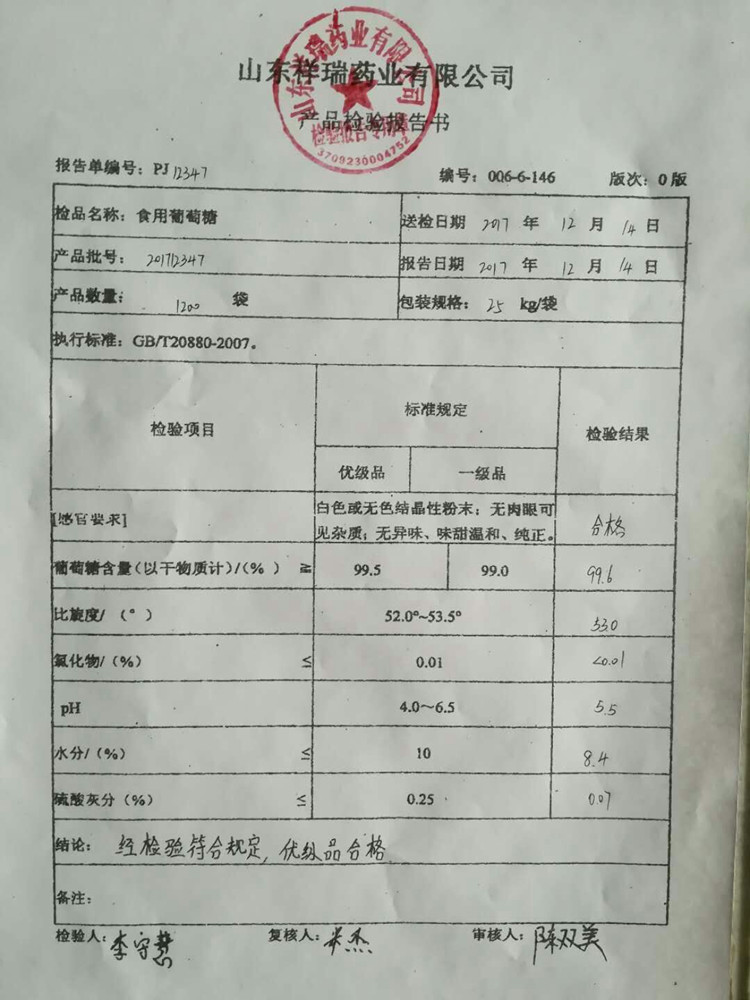 山东祥瑞药业有限公司
产品检验报告书
山东祥瑞药业有限公司
检验报告专用章
3709230004752
报告单编号：PJ 12347 编号：006-6-146 版次：0版
检品名称：食用葡萄糖 送检日期 2017 年 12 月 14 日
产品批号：201712347 报告日期 2017 年 12 月 14 日
产品数量： 1200 袋 包装规格： 25 kg/袋
执行标准：GB/T20880-2007。
检验项目 标准规定 检验结果
优级品 一级品
[感官要求] 白色或无色结晶性粉末；无肉眼可 合格
见杂质；无异味、味甜温和、纯正。
葡萄糖含量（以干物质计）/(%) ≥ 99.5 99.0 99.6
比旋度/（°） 52.0°~53.5° 53.0
氯化物/（%） ≤ 0.01 <0.01
pH 4.0～6.5 5.5
水分/（%） ≤ 10 8.4
硫酸灰分（%） ≤ 0.25 0.07
结论： 经检验符合规定，优级品合格
备注：
检验人：李守慧 复核人：米杰 审核人：陈双美